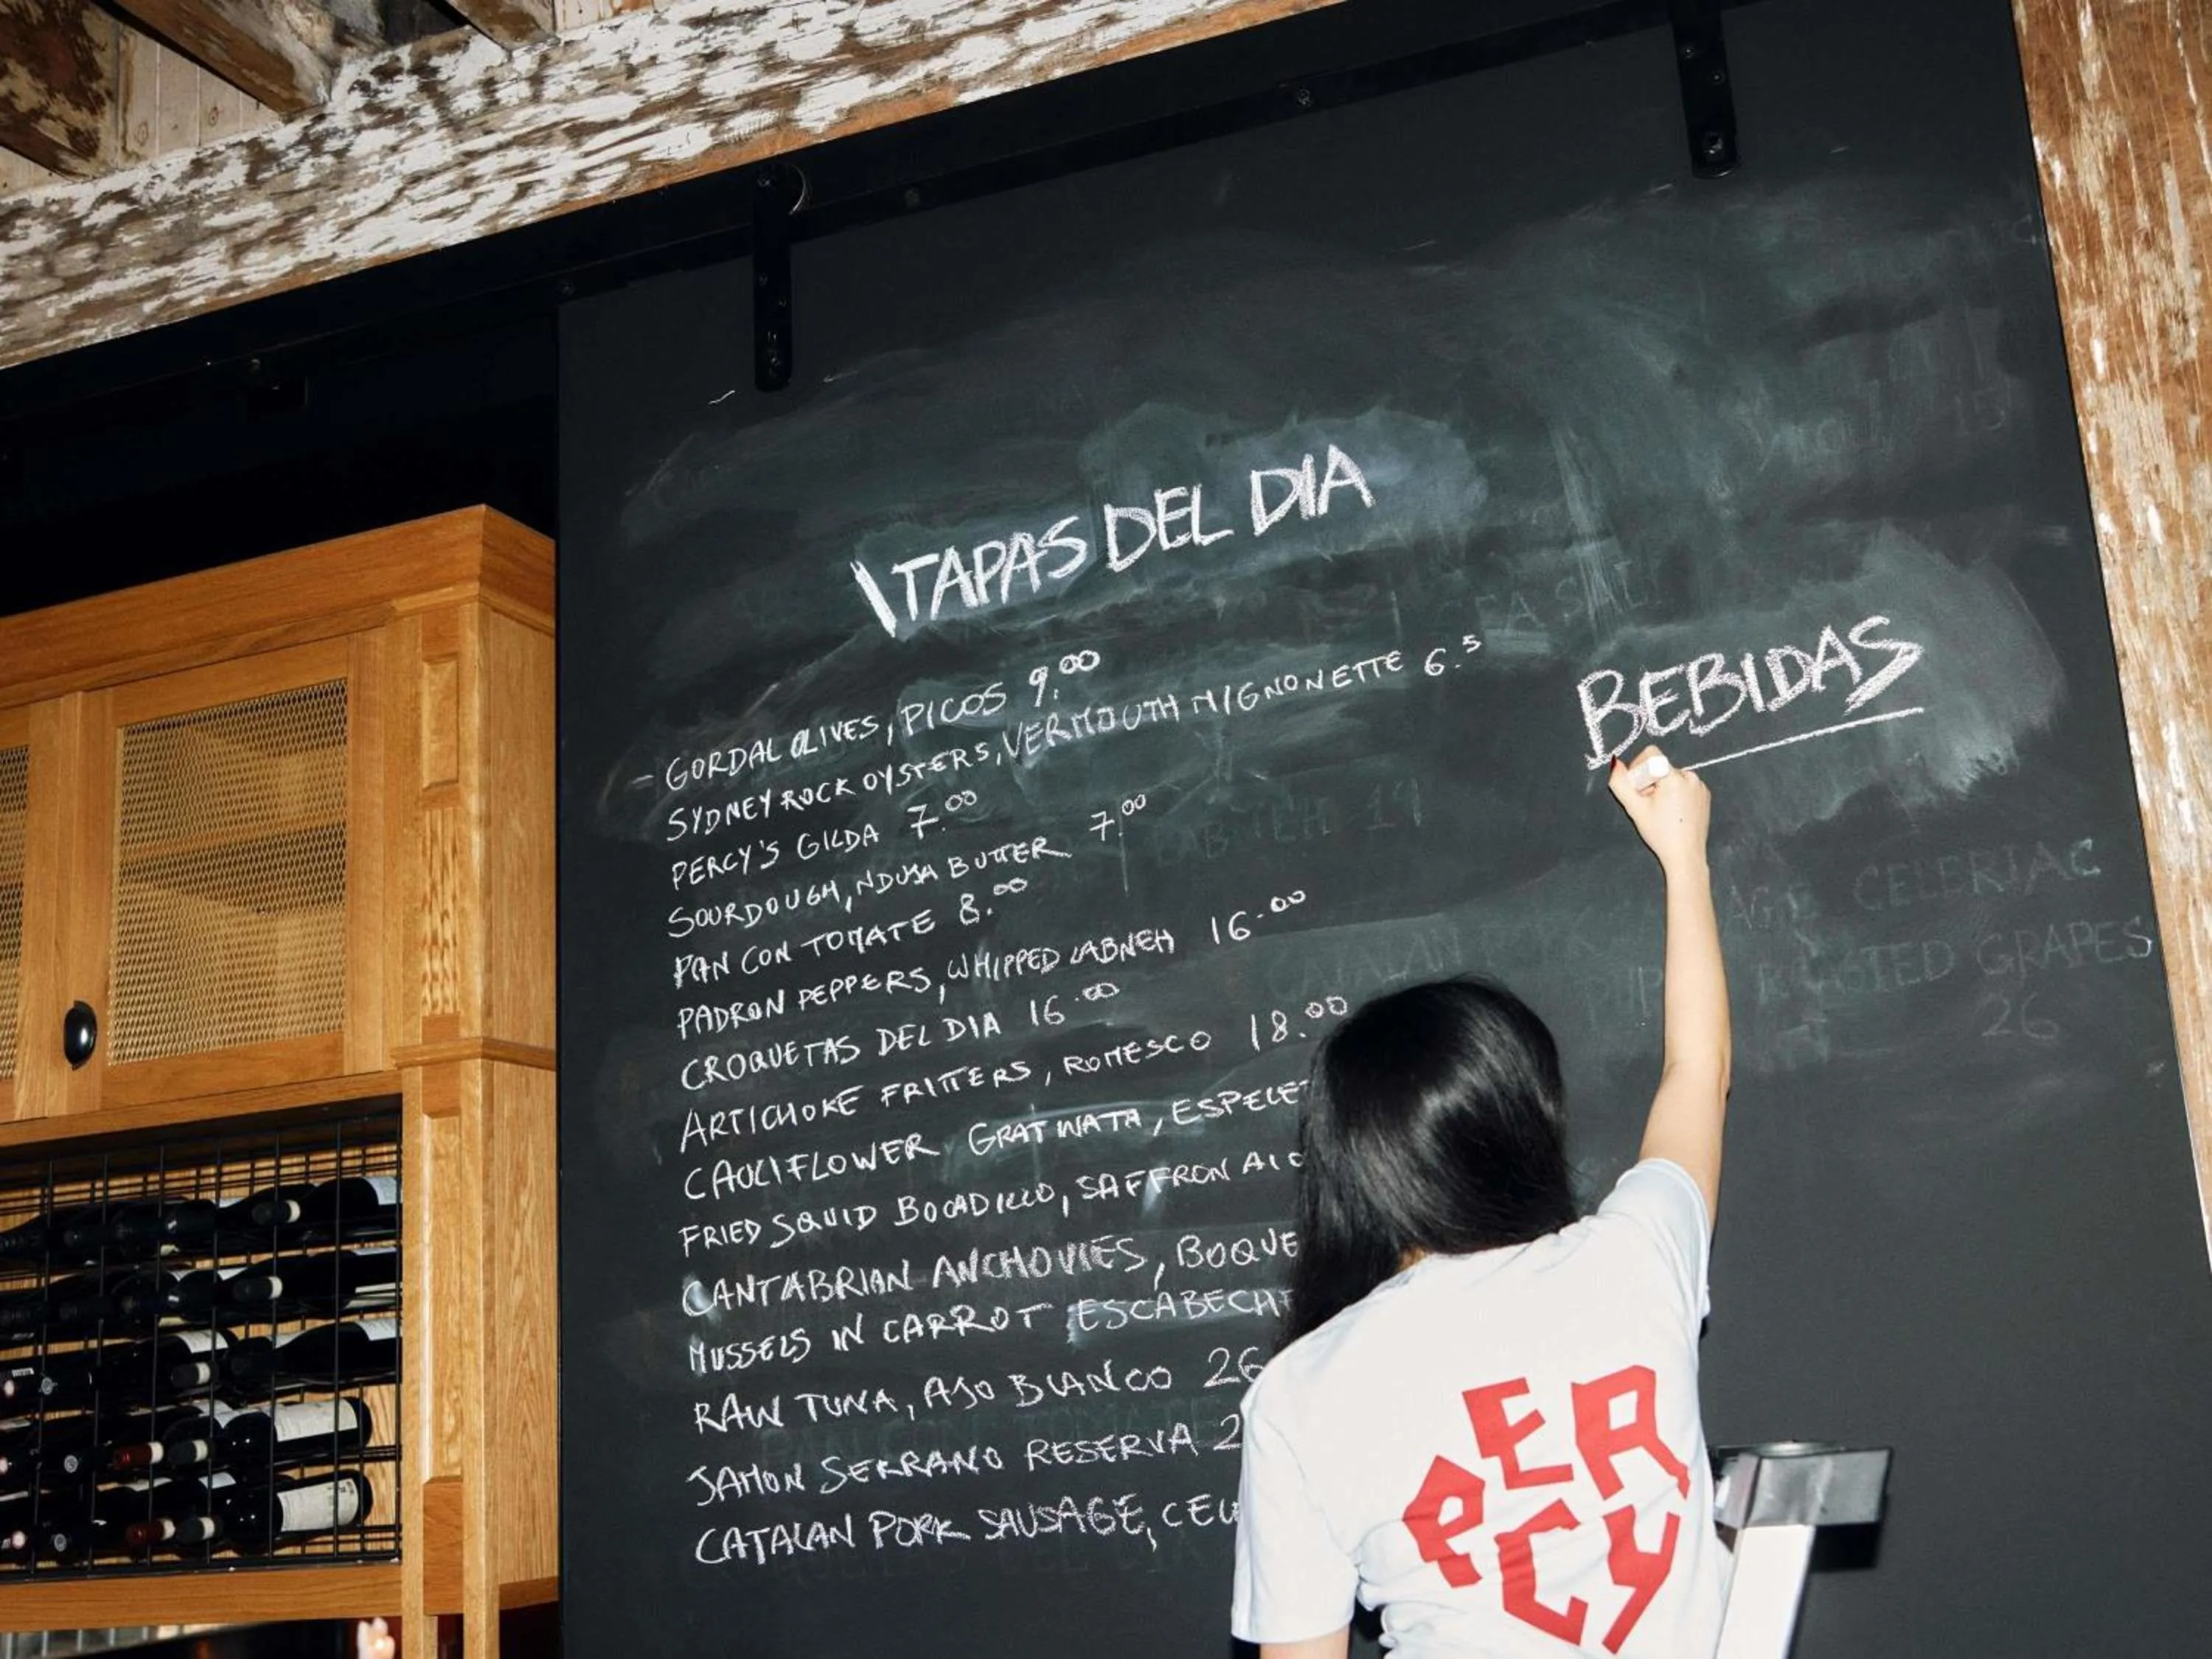 TAPAS DEL DIA
- GORDAL OLIVES, PICOS 9.00
SYDNEY ROCK OYSTERS, VERMOUTH MIGNONETTE 6.5
PERCY'S GILDA 7.00
SOURDOUGH, NDUJA BUTTER 7.00
PAN CON TOMATE 8.00
PADRON PEPPERS, WHIPPED LABNEH 16.00
CROQUETAS DEL DIA 16.00
ARTICHOKE FRITTERS, ROMESCO 18.00
CAULIFLOWER GRATINATA, ESPELET
FRIED SQUID BOCADILLO, SAFFRON AIO
CANTABRIAN ANCHOVIES, BOQUE
MUSSELS IN CARROT ESCABECH
RAW TUNA, AJO BLANCO 26
JAMON SERRANO RESERVA 2
CATALAN PORK SAUSAGE, CEL
BEBIDAS
CELERIAC
ROASTED GRAPES
26
PERCY